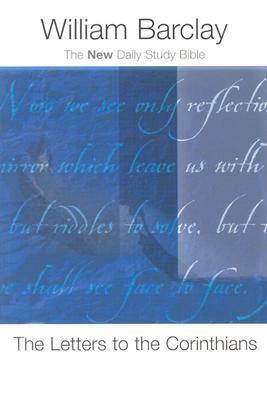 William Barclay
The New Daily Study Bible
Now we see only reflectio
mirror which leave us with
but riddles to solve, but t
shall see face to face.
The Letters to the Corinthians